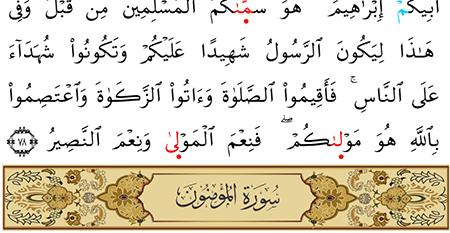 أَبِيكُمْ إِبْرَٰهِيمَ ۚ هُوَ سَمَّىٰكُمُ الْمُسْلِمِينَ مِن قَبْلُ وَفِى
هَٰذَا لِيَكُونَ الرَّسُولُ شَهِيدًا عَلَيْكُمْ وَتَكُونُوا۟ شُهَدَآءَ
عَلَى النَّاسِ ۚ فَأَقِيمُوا۟ الصَّلَوٰةَ وَءَاتُوا۟ الزَّكَوٰةَ وَاعْتَصِمُوا۟
بِاللَّهِ هُوَ مَوْلَىٰكُمْ ۖ فَنِعْمَ الْمَوْلَىٰ وَنِعْمَ النَّصِيرُ ٧٨
سُورَةُ الْمُؤْمِنُونَ